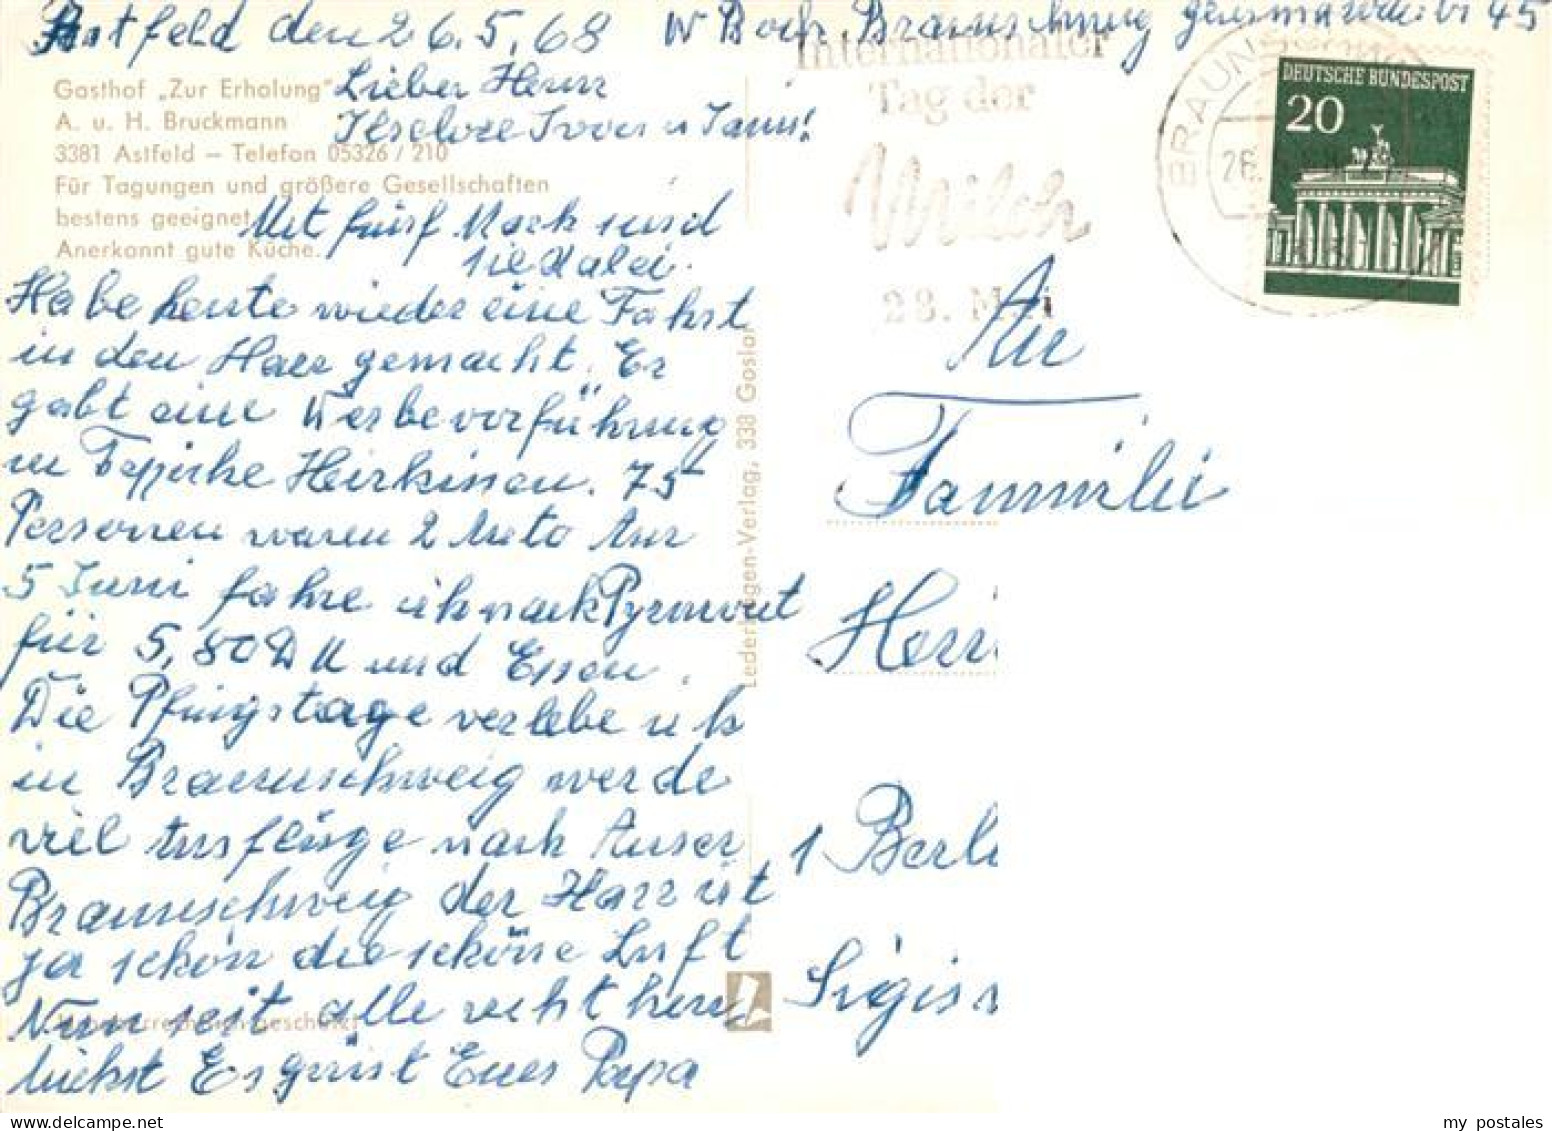 Astfeld den 26.5.68 W Boch. Braunschweig
Gasthof „Zur Erholung"
A. u. H. Bruckmann
3381 Astfeld – Telefon 05326 / 210
Für Tagungen und größere Gesellschaften
bestens geeignet
Anerkannt gute Küche.
Lieber Horst
Ilselore
Mit fünf Mark und
Habe heute wieder eine Fahrt
in den Harz gemacht. Es
gabt eine Werbevorführung
in Teppiche Heizkissen. 75
Personen waren 2 Auto Am
5 Juni fahre ich nach Pyrmont
für 5,80 DM und Essen.
Die Pfingstage verlebe ich
in Braunschweig werde
viel Ausflüge nach Auser
Braunschweig der Harz ist
ja schön die schöne Luft
Nun seit alle recht herz
lichst Es grüst Eues Papa
Lederbogen-Verlag, 338 Goslar
Internationaler
Tag der
Milch
28. Mai
BRAUNSCHWEIG
26.
DEUTSCHE BUNDESPOST
20
An
Familie
Horst
1 Berli
Sigis
my postales